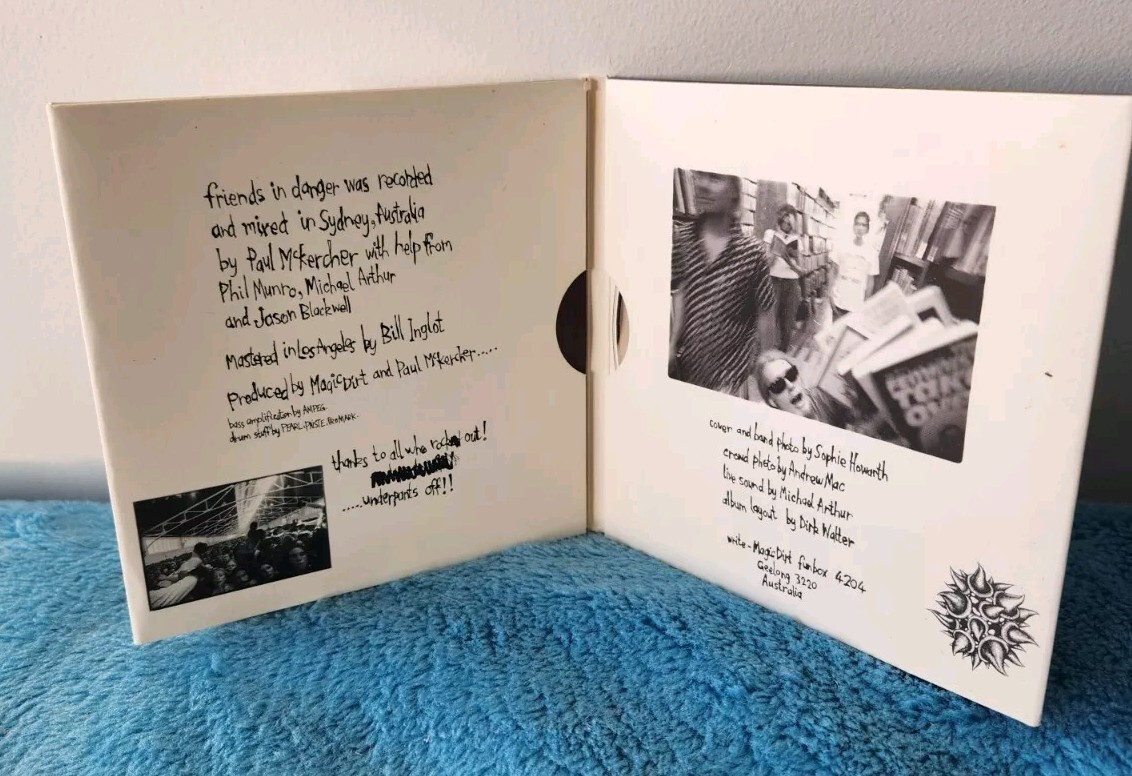 friends in danger was recorded
and mixed in Sydney, Australia
by Paul McKercher with help from
Phil Munro, Michael Arthur
and Jason Blackwell
Mastered in Los Angeles by Bill Inglot
produced by Magic Dirt and Paul McKercher.....
bass amplification by AMPEG.
drum stuff by PEARL-PAISTE-
thanks to all who rocked out!
.....underpants off!!
cover and band photo by Sophie Howarth
crowd photo by Andrew Mac
live sound by Michael Arthur
album layout by Dirk Walter
write - Magic Dirt funbox 4204
Geelong 3220
Australia